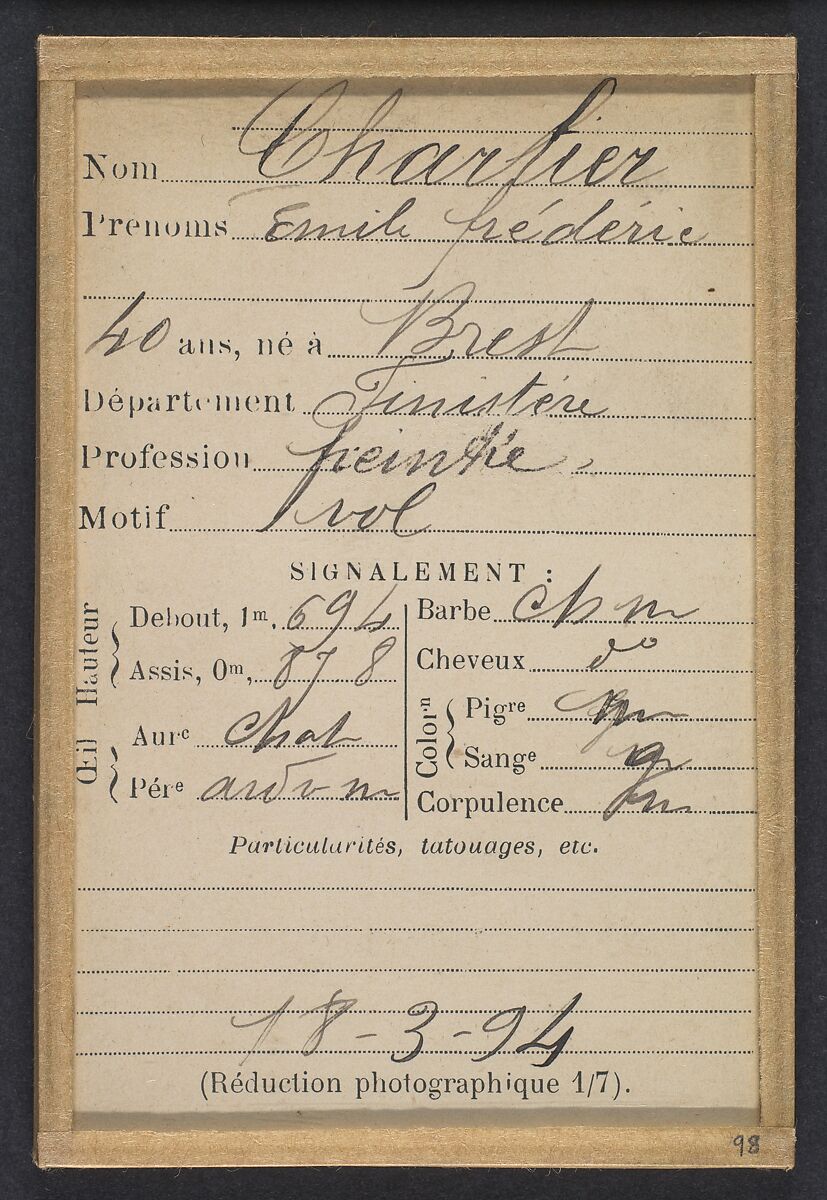 Nom Chartier
Prénoms Emile frédéric
40 ans, né à Brest
Département Finistére
Profession peintre
Motif vol
SIGNALEMENT :
Hauteur
Debout, 1m, 694
Assis, 0m, 87 8
Œil
Aure chat
Pére ard v m
Barbe ch m
Cheveux do
Colorn
Pigre
Sange g
Corpulence m
Particularités, tatouages, etc.
18-3-94
(Réduction photographique 1/7).
98